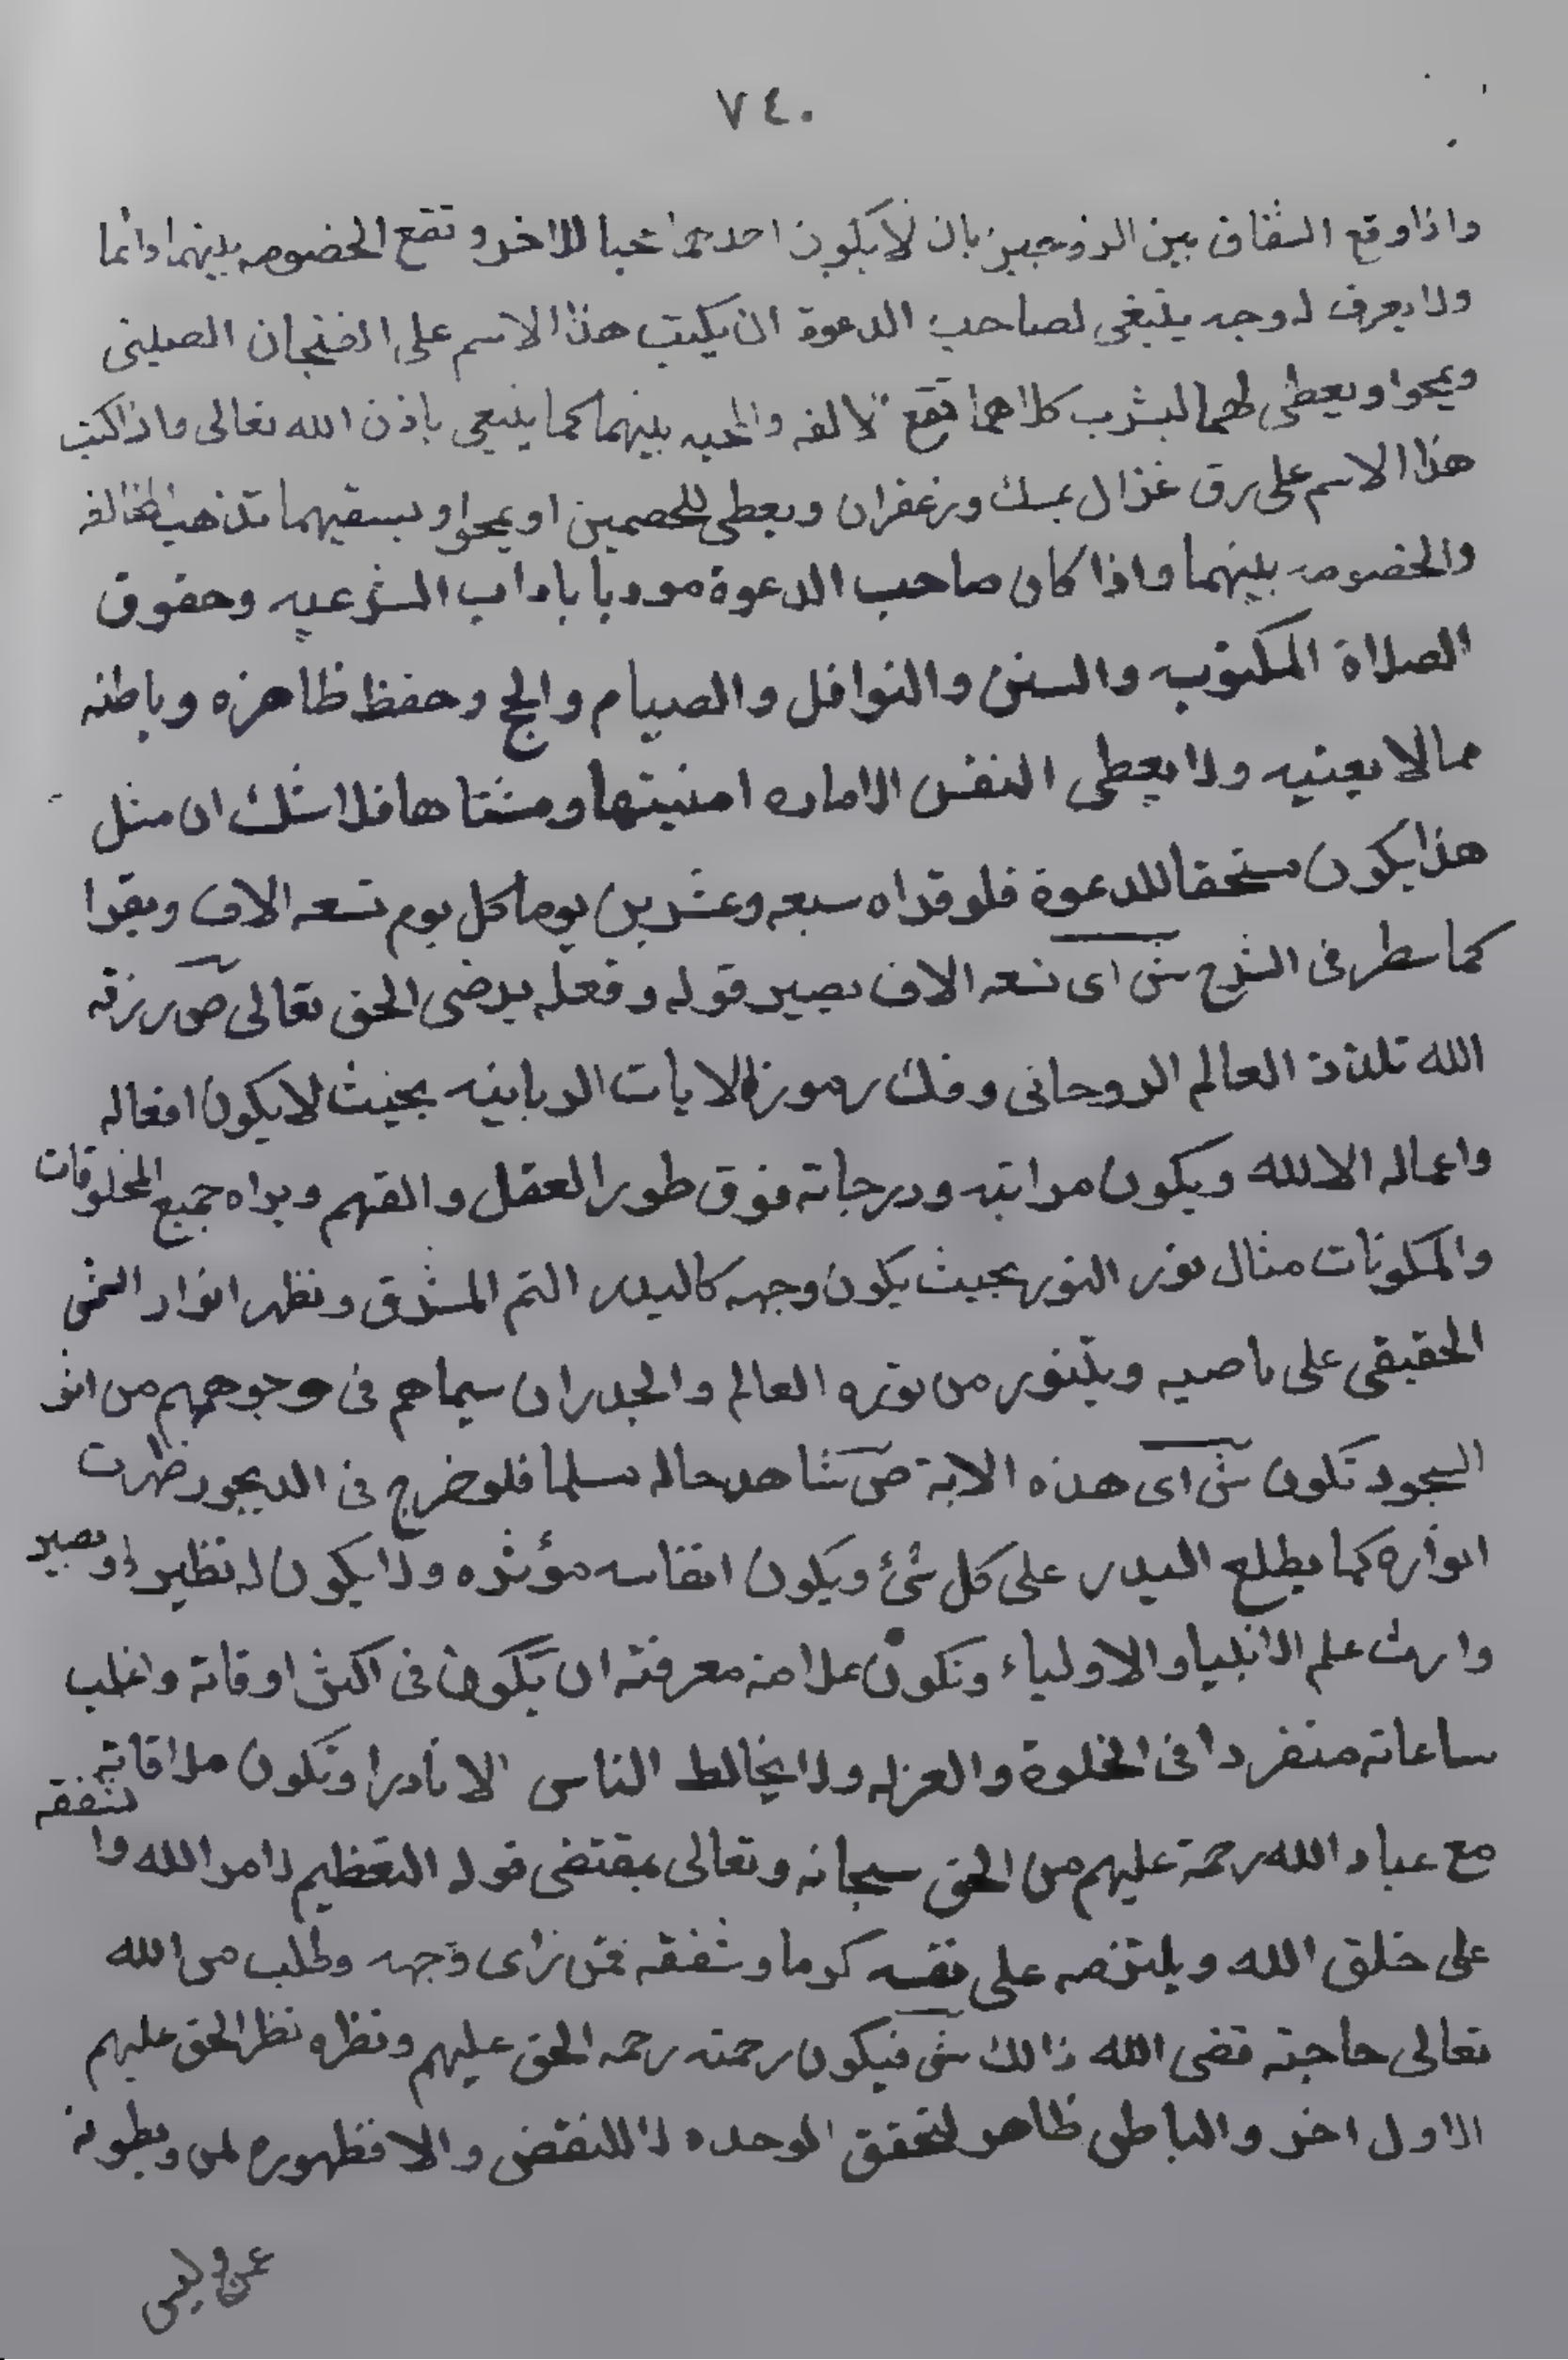 ٧٤٠
واذا وقع الشقاق بين الزوجين بان لا يكون احدهما محبا للاخر و تقع الخصومه بينهما دائما
ولا يعرف له وجه ينبغى لصاحب الدعوة ان يكتب هذا الاسم على الفنجان الصينى
ويمحوا ويعطى لهما لبشرب كلاهما تقع الالفه والمحبه بينهما كما ينبغى باذن الله تعالى واذا كتب
هذا الاسم على رق غزال بمسك وزعفران ويعطى للخصمين او يمحوا ويسقيهما تذهب المخالفه
والخصومه بينهما واذا كان صاحب الدعوة مودبا باداب الشرعيه وحقوق
الصلاة المكتوبه والسنن والنوافل والصيام والحج وحفظ ظاهره وباطنه
مما لا يعنيه ولا يعطى النفس الاماره امنيتها ومشتاها فلا شك ان مثل
هذا يكون مستحقا للدعوة فلو قراه سبعه وعشرين يوما كل يوم تسعه الاف ويقرا
كما سطر فى الشرح ش اى تسعه الاف يصير قوله وفعله يرضى الحق تعالى ص ورزقه
الله تلذذ العالم الروحانى وفك رموزة الايات الربانيه بحيث لا يكون افعاله
واعماله الا لله ويكون مراتبه ودرجاته فوق طور العقل والفهم ويراه جميع المخلوقات
والمكونات مثال نور النور بحيث يكون وجهه كالبدر التم المشرق ونظهر انوار الشمس
الحقيقى على ناصيه ويتنور من نوره العالم والجدران سيماهم فى وجوههم من اثر
السجود تكون ش اى هذه الاية ص شاهد حاله مسلما فلو خرج فى الديجور ظهرت
انواره كما يطلع البدر على كل شئ ويكون انفاسه مؤثره ولا يكون له نظير او يصير
وارث علم الانبيا والاولياء وتكون علامة معرفته ان يكون فى اكثر اوقاته واغلب
ساعاته منفردا فى الخلوة والعزله ولا يخالط الناس الا نادرا وتكون ملاقاته
مع عباد الله رحمة عليهم من الحق سبحانه وتعالى بمقتضى قوله التعظيم لامر الله والشفقه
على خلق الله ويلتزمه على نفسه كرما وشفقه فمن راى وجهه وطلب من الله
تعالى حاجته قضى الله ذالك ش فيكون رحمته رحمه الحق عليهم ونظره نظر الحق عليهم
الاول اخر والباطن ظاهر لتحقق الوحده لا للنقض والا فظهوره لمن وبطونه